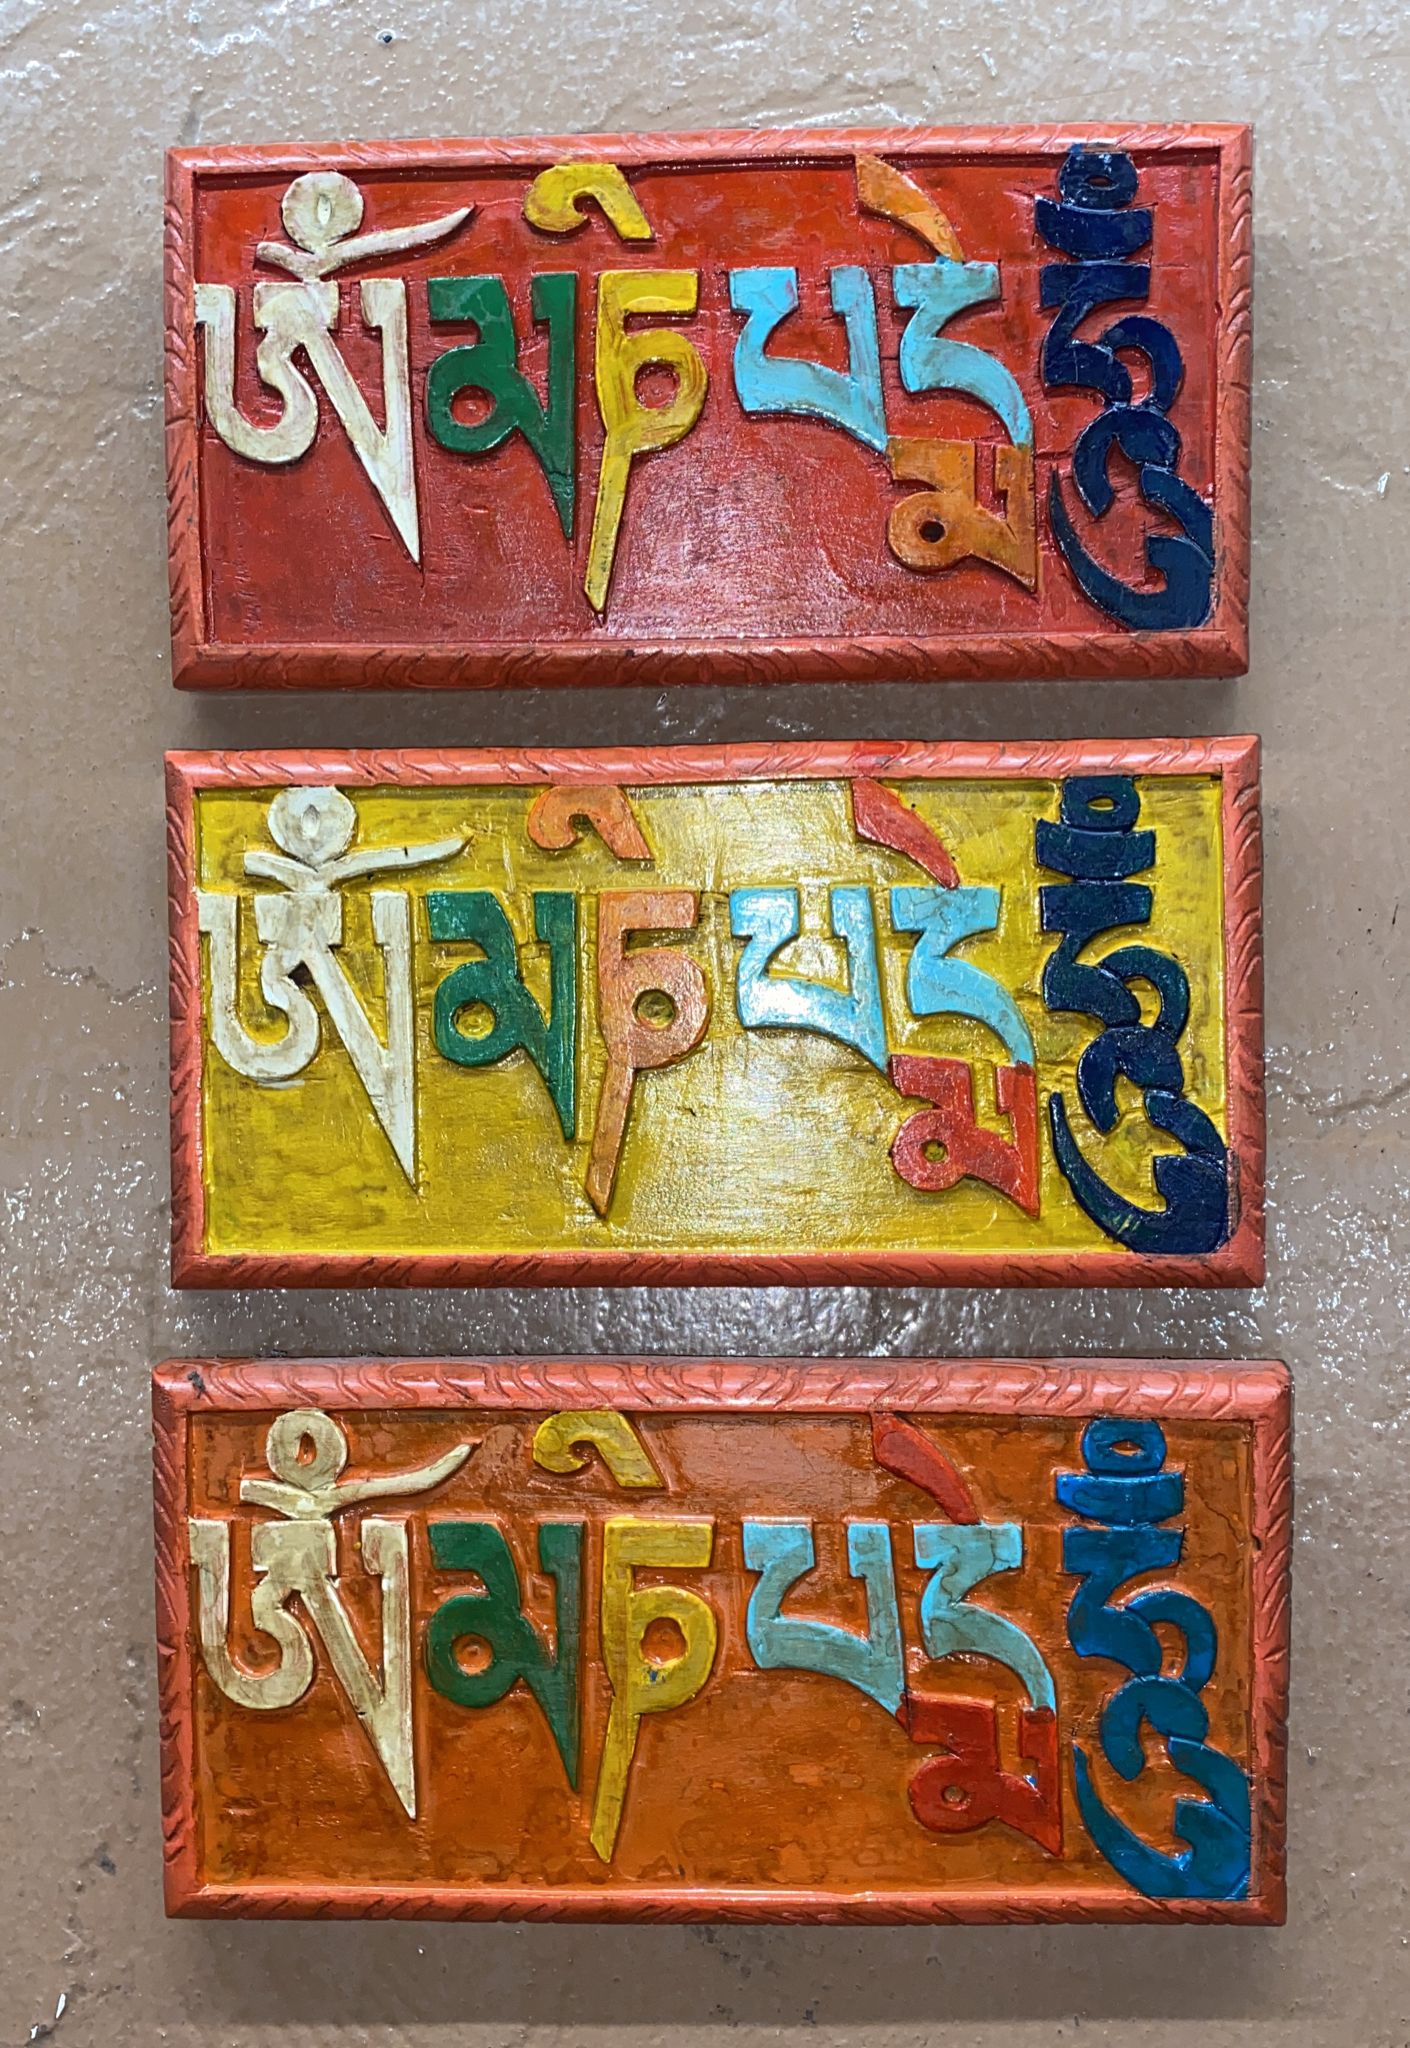 ཨོཾ མ ཎི པ དྨེ ཧཱུྃ
ཨོཾ མ ཎི པ དྨེ ཧཱུྃ
ཨོཾ མ ཎི པ དྨེ ཧཱུྃ